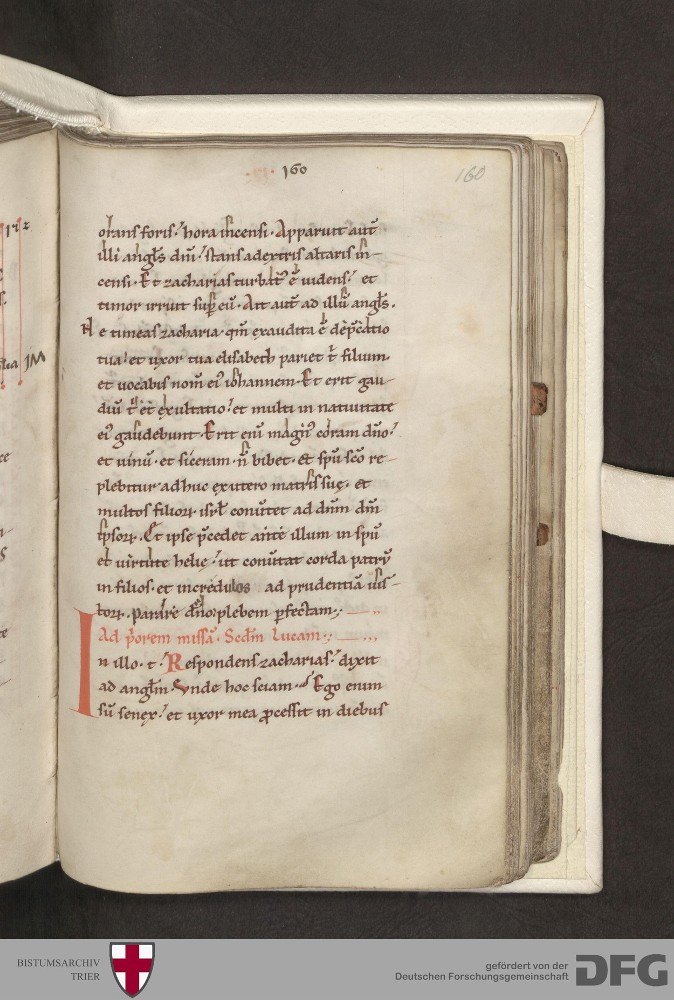 160
160
orans foris. hora incensi. Apparuit aut̄
illi angl̄s dn̄i. stans adextris altaris in-
censi. Et zacharias turbat᷒ ē videns. et
timor irruit sup eū. Ait aut̄ ad illū angl̄s.
Ne timeas zacharia. qm̄ exaudita ē dep̄catio
tua. et uxor tua elisabeth pariet t̄ filium.
et uocabis nom̄ ei᷒ iohannem. Et erit gau-
diū t̄ et exultatio. et multi in natiuitate
ei᷒ gaudebunt. Erit enī magn᷒ coram dn̄o.
et uinū. et siceram. n̄ bibet. et sp̄u sc̄o re-
plebitur adhuc ex utero matris suę. et
multos filioꝝ isrl̄ conūtet ad dn̄m dm̄
ipsoꝝ. Et ipse p̄cedet ante illum in sp̄u
et uirtute helie. ut conūtat corda patrū
in filios. et incredulos ad prudentiā ius-
toꝝ. parare dn̄o plebem ꝑfectam.
Ad p̄orem missā. Scd̄m lucam.
In illo. t. Respondens zacharias. dixit
ad angl̄m. Unde hoc sciam. Ego enim
sū senex. et uxor mea ꝓcessit in diebus
BISTUMSARCHIV
TRIER
gefördert von der
Deutschen Forschungsgemeinschaft
DFG